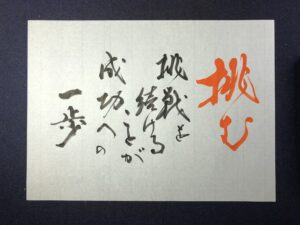 挑む
挑戦を
続ける
ことが
成功への
一歩